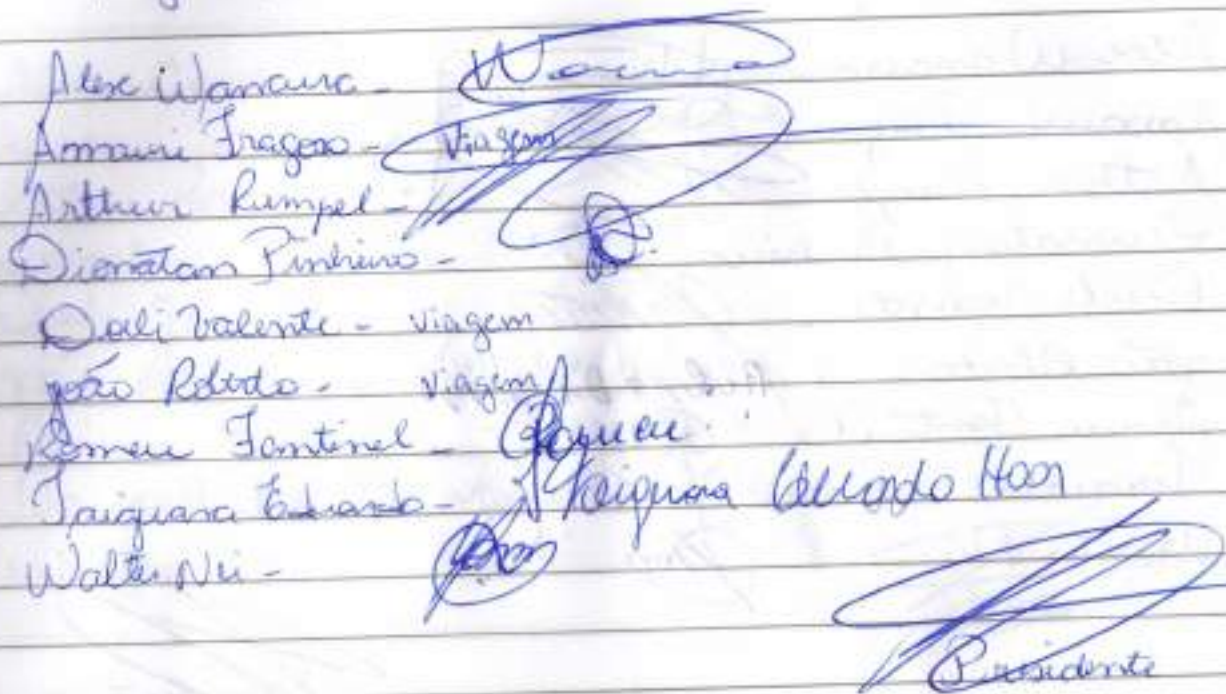 Alex Wanaura -
Amauri Fragoso - Viagem
Arthur Rumpel -
Dionatan Pinheiro -
Dali Valente - viagem
João Roberto - viagem
Romeu Fantinel - Romeu
Taiguara Eduardo - Taiguara Eduardo Haar
Walter Nei -
Presidente